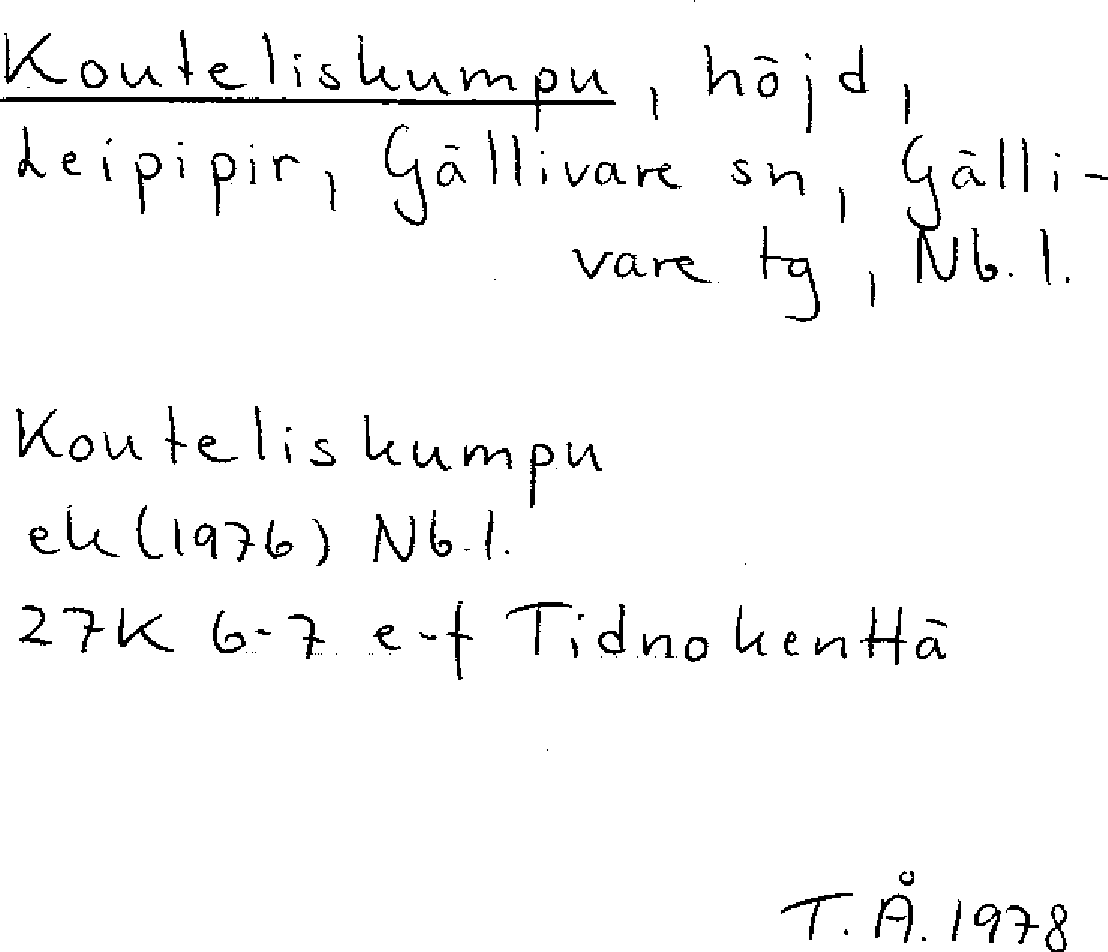 Kouteliskumpu, höjd,
Leipipir, Gällivare sn, Gälli-
vare tg, Nb. l.
Kouteliskumpu
ek (1976) Nb. l.
27K 6-7 e-f Tidnokenttä
T. Å. 1978